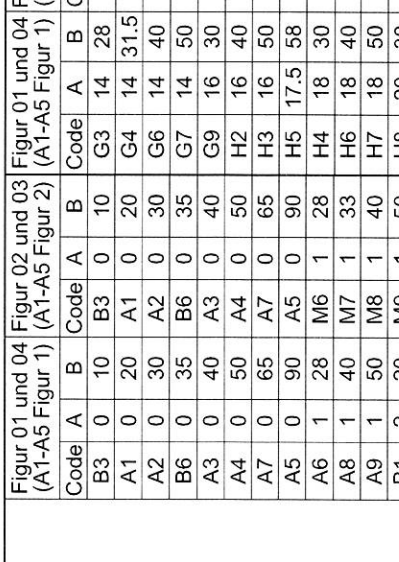 Figur 01 und 04 Figur 02 und 03 Figur 01 und 04
(A1-A5 Figur 1) (A1-A5 Figur 2) (A1-A5 Figur 1)
Code A B Code A B Code A B
B3 0 10 B3 0 10 G3 14 28
A1 0 20 A1 0 20 G4 14 31.5
A2 0 30 A2 0 30 G6 14 40
B6 0 35 B6 0 35 G7 14 50
A3 0 40 A3 0 40 G9 16 30
A4 0 50 A4 0 50 H2 16 40
A7 0 65 A7 0 65 H3 16 50
A5 0 90 A5 0 90 H5 17.5 58
A6 1 28 M6 1 28 H4 18 30
A8 1 40 M7 1 33 H6 18 40
A9 1 50 M8 1 40 H7 18 50